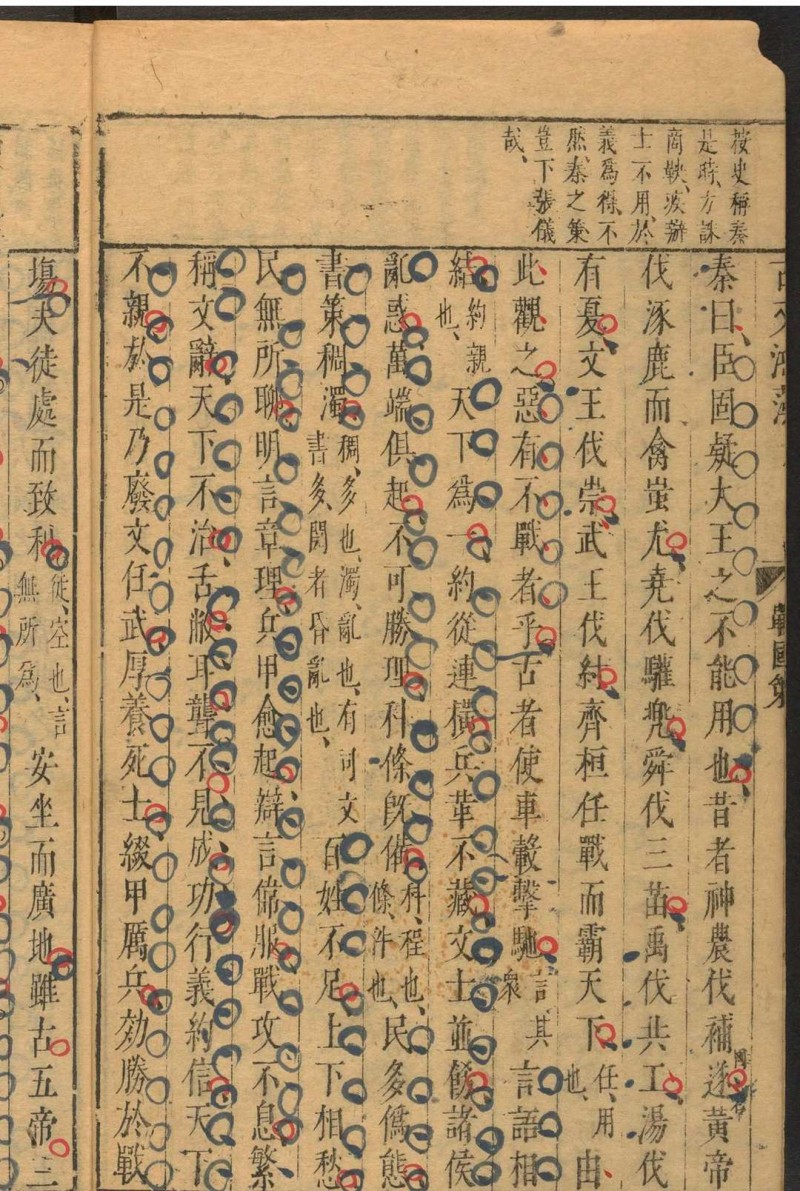 按史稱秦
是時、方誅
商鞅、疾辯
士不用、於
義爲得、不
然、秦之策
豈下張儀
哉、
戰國策
秦曰、臣固疑大王之不能用也、昔者神農伐補遂、黃帝
伐涿鹿而禽蚩尤、堯伐驩兜、舜伐三苗、禹伐共工、湯伐
有夏、文王伐崇、武王伐紂、齊桓任戰而霸天下、任、用也、由、
此觀之、惡有不戰者乎、古者使車轂擊馳、言其衆言語相
結、約親也、天下爲一、約從連橫、兵革不藏、文士並餝、諸侯
亂惑、萬端俱起、不可勝理、科條既備、科、程也、條、件也、民多僞態、
書策稠濁、稠、多也、濁、亂也、有司文書多、閱者昏亂也、百姓不足、上下相愁、
民無所聊、明言章理、兵甲愈起、辯言偉服、戰攻不息、繁
稱文辭、天下不治、舌敝耳聾、不見成功、行義約信、天下
不親、於是乃廢文任武、厚養死士、綴甲厲兵、効勝於戰
塲、夫徒處而致利、徒、空也、言無所爲、安坐而廣地、雖古五帝三